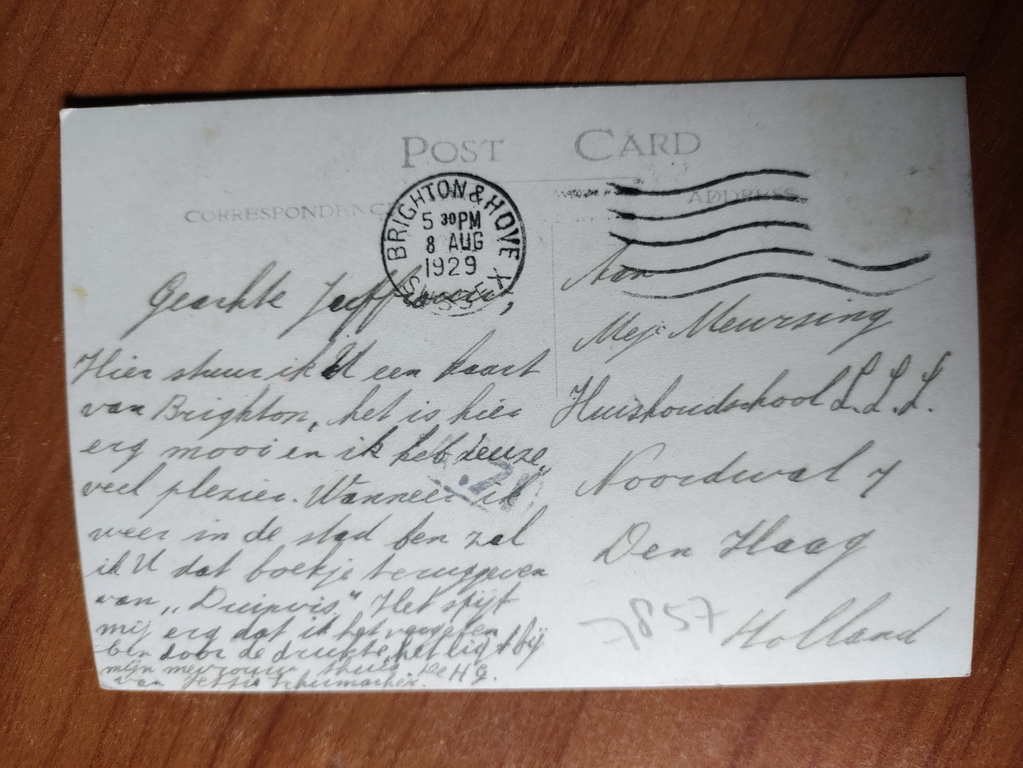 POST CARD
CORRESPONDENCE
ADDRESS
BRIGHTON & HOVE
5 30 PM
8 AUG
1929
SUSSEX
Geachte Juffrouw,
Hier stuur ik U een kaart
van Brighton, het is hier
erg mooi en ik heb reuze
veel plezier. Wanneer ik
weer in de stad ben zal
ik U dat boekje teruggeven
van „Duinvis". Het spijt
mij erg dat ik het vergeten
ben door de drukte, het ligt bij
mijn mevrouw thuis. De H G.
van Jessie Schumacher.
Aan
Mej. Meursing
Huishoudschool L.L.L.
Noordwal 7
Den Haag
Holland
7857